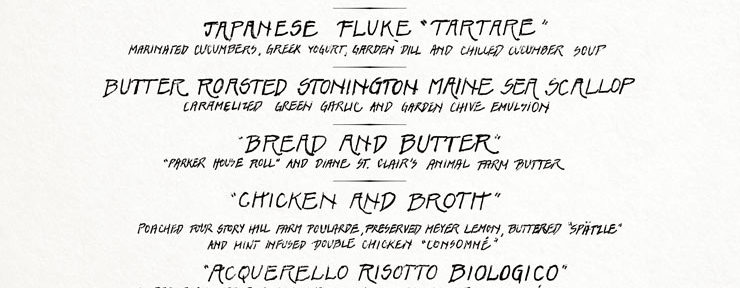 JAPANESE FLUKE "TARTARE"
MARINATED CUCUMBERS, GREEK YOGURT, GARDEN DILL AND CHILLED CUCUMBER SOUP
BUTTER ROASTED STONINGTON MAINE SEA SCALLOP
CARAMELIZED GREEN GARLIC AND GARDEN CHIVE EMULSION
"BREAD AND BUTTER"
"PARKER HOUSE ROLL" AND DIANE ST. CLAIR'S ANIMAL FARM BUTTER
"CHICKEN AND BROTH"
POACHED FOUR STORY HILL FARM POULARDE, PRESERVED MEYER LEMON, BUTTERED "SPÄTZLE"
AND MINT INFUSED DOUBLE CHICKEN "CONSOMMÉ"
"ACQUERELLO RISOTTO BIOLOGICO"